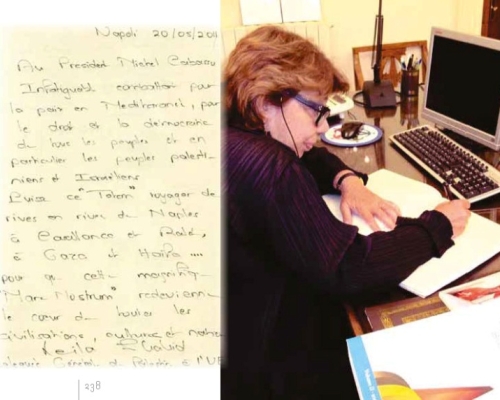 Napoli 20/05/201
Au President Michel Capasso
Infatigable combattant pour
la paix en Mediterranée, pour
le droit et la démocratie
de tous les peuples et en
particulier les peuples palesti-
niens et Israéliens
Puisse ce "Totem" voyager de
rives en rives de Naples
à Casablanca et Rabat,
à Gaza et Haïfa ....
pour que cette magnifique
"Mare Nostrum" redevienne
le cœur de toutes les
civilisations, cultures et
Leila Shahid
Générale de Palestine à l'UE
238